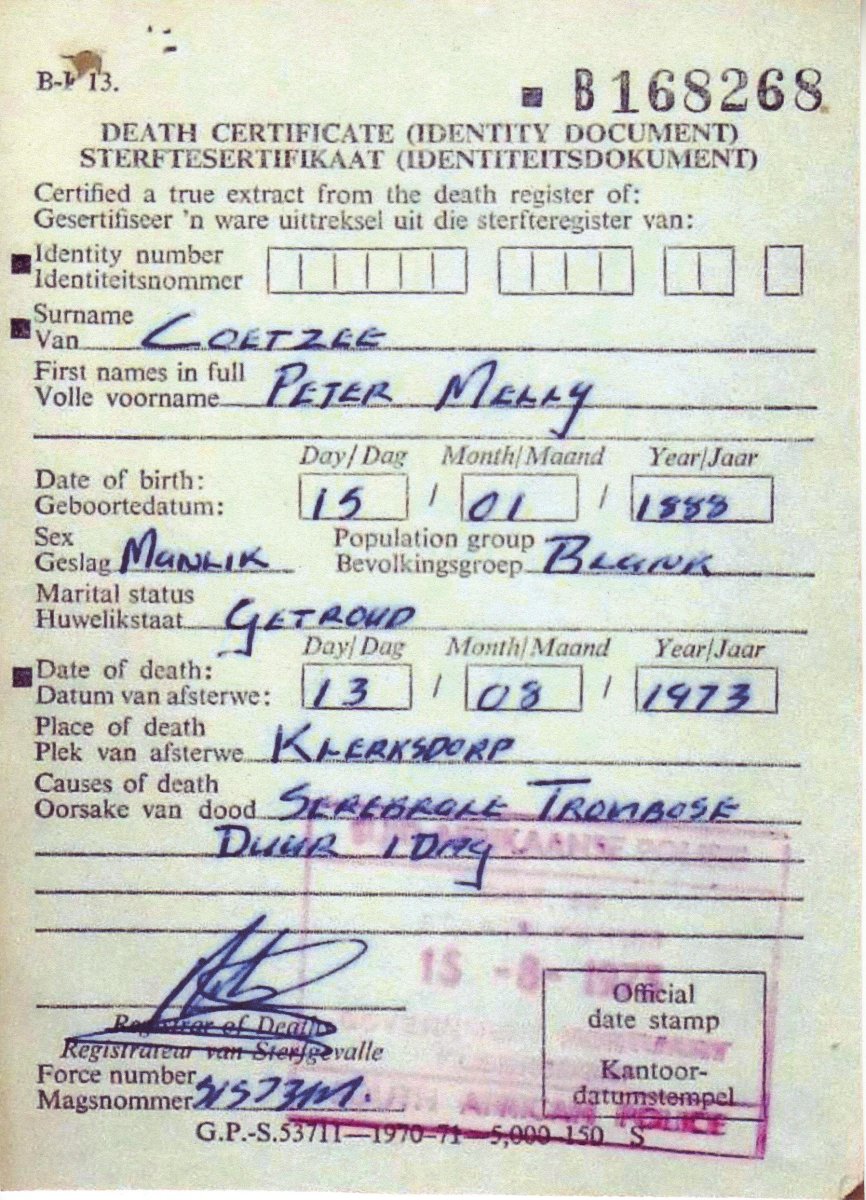 B-I 13.
B168268
DEATH CERTIFICATE (IDENTITY DOCUMENT)
STERFTESERTIFIKAAT (IDENTITEITSDOKUMENT)
Certified a true extract from the death register of:
Gesertifiseer 'n ware uittreksel uit die sterfteregister van:
Identity number
Identiteitsnommer
Surname
Van COETZEE
First names in full
Volle voorname PETER MELLY
Day/Dag Month/Maand Year/Jaar
Date of birth:
Geboortedatum: 15 / 01 / 1888
Sex Population group
Geslag MANLIK Bevolkingsgroep BLANK
Marital status
Huwelikstaat GETROUD
Day/Dag Month/Maand Year/Jaar
Date of death:
Datum van afsterwe: 13 / 08 / 1973
Place of death
Plek van afsterwe KLERKSDORP
Causes of death
Oorsake van dood SEREBRALE TROMBOSE
DUUR 1 DAG
15 -8-
Official
date stamp
Registrar of Death
Registrateur van Sterfgevalle
Kantoor-
datumstempel
Force number
Magsnommer
AFRICAN POLICE
G.P.-S.53711—1970-71—5,000-150 S